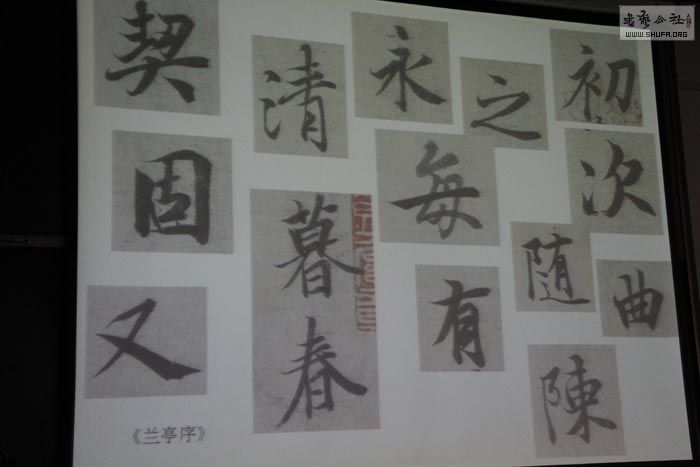 契
清
永
之
初
固
暮春
每
次
随
曲
又
有
陳
《兰亭序》
书艺公社
WWW.SHUFA.ORG